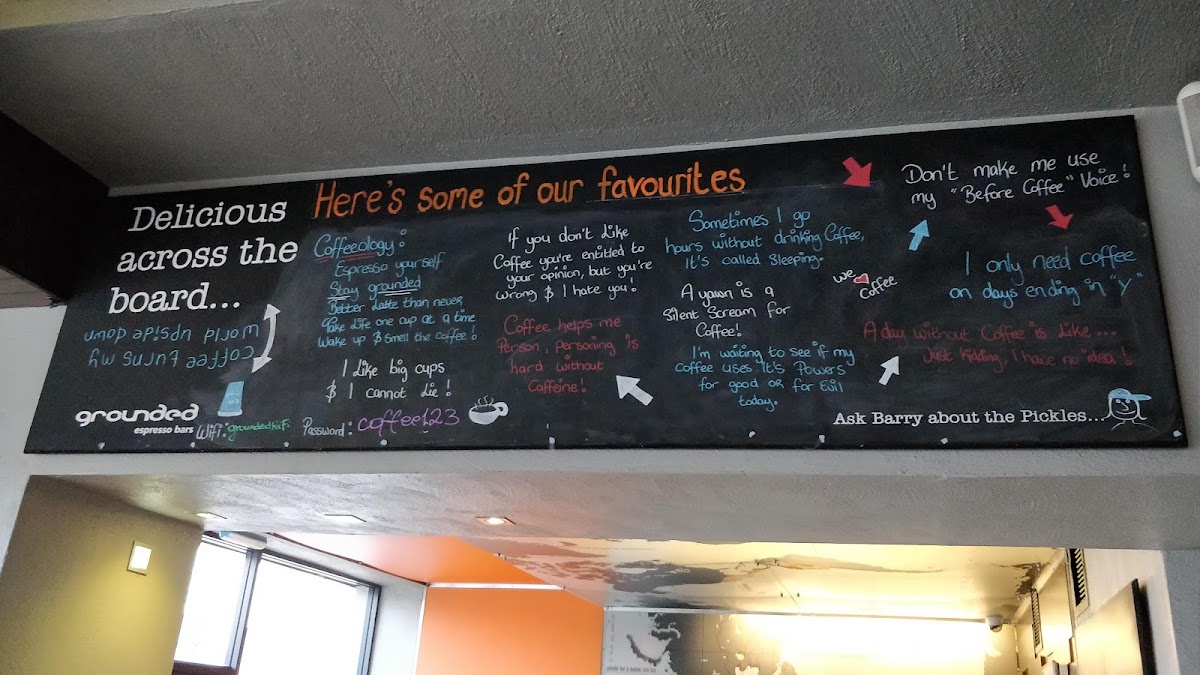 Delicious
across the
board...
Coffee turns my
world upside down
grounded
espresso bars
Wifi: groundedwifi Password: coffee123
Here's some of our favourites
Coffeeology:
Espresso yourself
Stay grounded
Better Latte than never
Take Life one cup at a time
Wake up & Smell the coffee!
I Like big cups
& I cannot Lie!
If you don't Like
Coffee you're entitled to
your opinion, but you're
wrong & I hate you!
Coffee helps me
Person, Personing is
hard without
Caffeine!
Sometimes I go
hours without drinking Coffee,
it's called Sleeping.
A yawn is a
Silent Scream for
Coffee!
I'm waiting to see if my
coffee uses it's Powers
for good or for Evil
today.
we
Coffee
Don't make me use
my "Before Coffee" Voice!
I only need coffee
on days ending in "Y"
A day without Coffee is Like ...
Just Kidding, I have no idea!
Ask Barry about the Pickles...